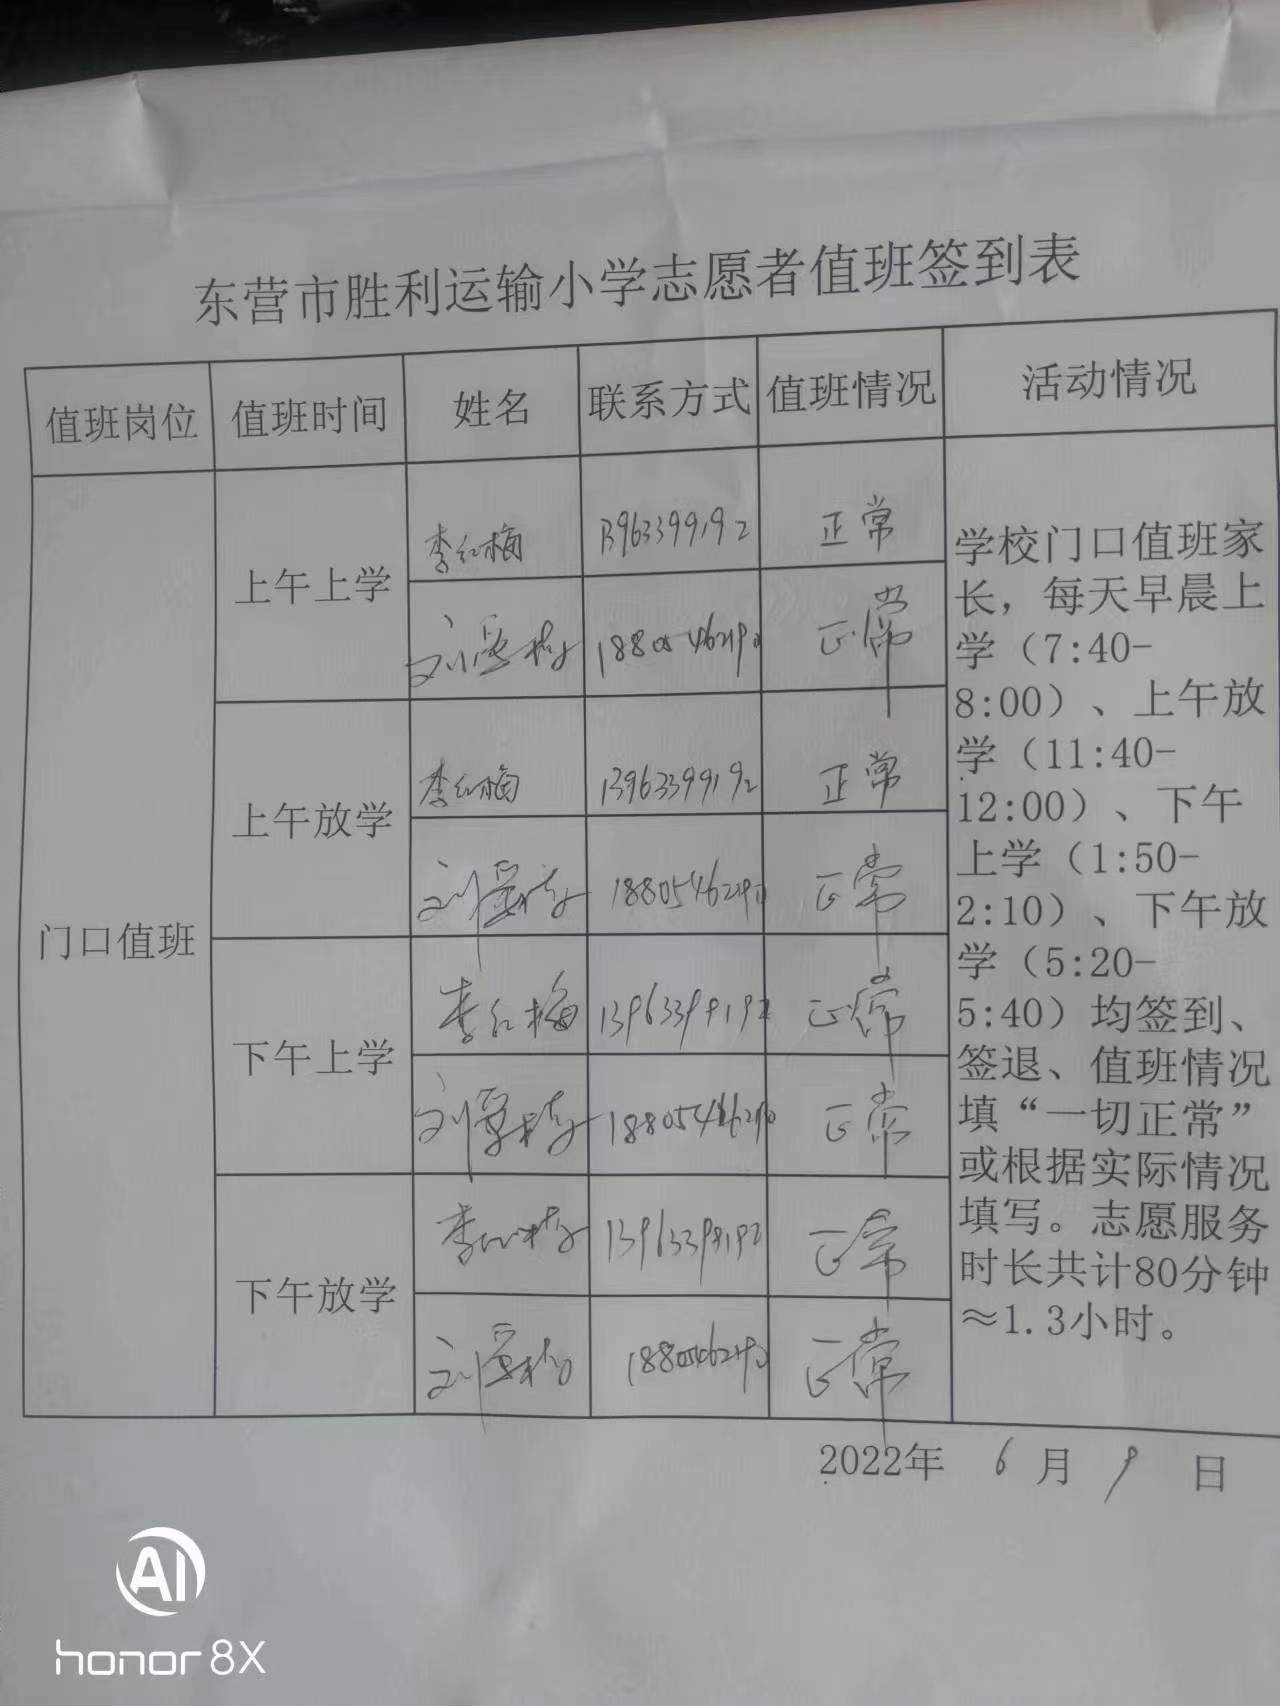 东营市胜利运输小学志愿者值班签到表
值班岗位 值班时间 姓名 联系方式 值班情况 活动情况
门口值班
上午上学
李红梅 13963399192 正常
刘 18805462190 正常
上午放学
李红梅 13963399192 正常
刘 18805462190 正常
下午上学
李红梅 13963399192 正常
刘 18805462190 正常
下午放学
李红梅 13963399192 正常
刘 18805462190 正常
学校门口值班家
长，每天早晨上
学（7:40-
8:00）、上午放
学（11:40-
12:00）、下午
上学（1:50-
2:10）、下午放
学（5:20-
5:40）均签到、
签退、值班情况
填“一切正常”
或根据实际情况
填写。志愿服务
时长共计80分钟
≈1.3小时。
2022年 6 月 9 日
AI
honor 8X